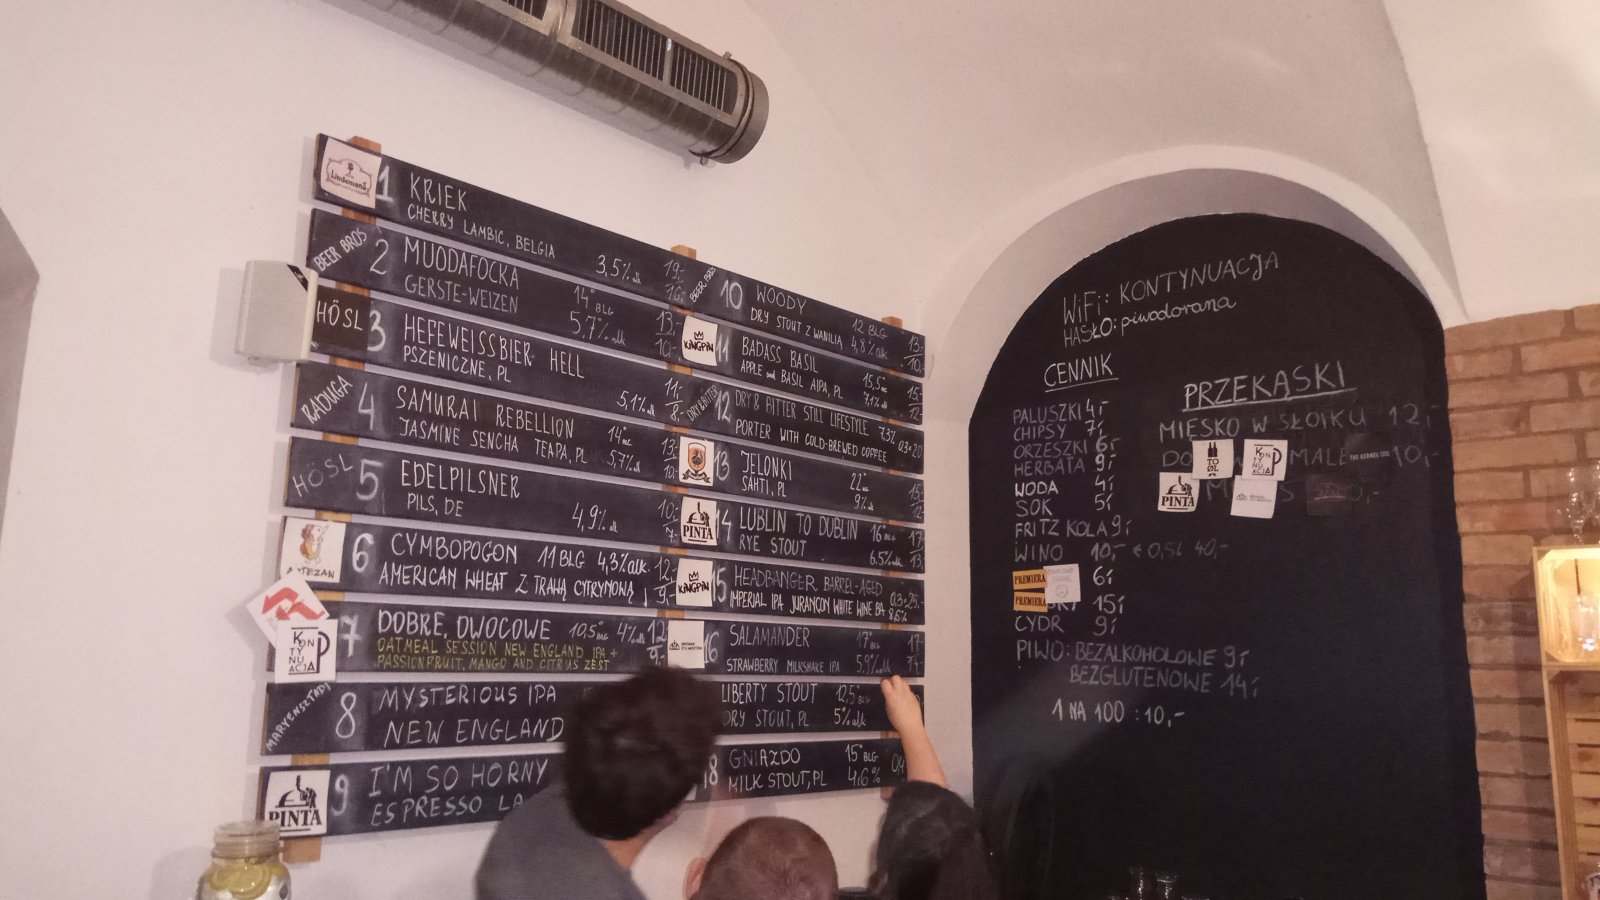 Lindemans
1 KRIEK
CHERRY LAMBIC, BELGIA
3,5% alk
19,-
16,-
BEER BROS
2 MUODAFOCKA
GERSTE-WEIZEN
14° BLG
5,7% alk
13,-
10,-
HÖSL
3 HEFEWEISSBIER HELL
PSZENICZNE, PL
5,1% alk
11,-
8,-
RADUGA
4 SAMURAI REBELLION
JASMINE SENCHA TEAPA, PL
14°
5,7% alk
13,-
10,-
HÖSL
5 EDELPILSNER
PILS, DE
4,9% alk
10,-
7,-
ARTEZAN
6 CYMBOPOGON 11 BLG 4,3% alk.
AMERICAN WHEAT Z TRAWĄ CYTRYNOWĄ
12,-
9,-
KONTYNUACJA
7 DOBRE, OWOCOWE 10,5° BLG 4% alk
OATMEAL SESSION NEW ENGLAND IPA +
PASSIONFRUIT, MANGO AND CITRUS ZEST
12
9,-
MARYENSZTADT
8 MYSTERIOUS IPA
NEW ENGLAND
PINTA
9 I'M SO HORNY
ESPRESSO
BEER BROS
10 WOODY
DRY STOUT Z WANILIĄ
12 BLG
4,8% alk.
13,-
10,-
KINGPIN
11 BADASS BASIL
APPLE and BASIL AIPA, PL
15,5
7,1% alk
15,-
12,-
DRY & BITTER
12 DRY & BITTER STILL LIFESTYLE 7,3%
PORTER WITH COLD-BREWED COFFEE
13 JELONKI
SAHTI, PL
22
9% alk
15,-
12,-
PINTA
14 LUBLIN TO DUBLIN
RYE STOUT
16° BLG
6.5% alk
17,-
13,-
KINGPIN
15 HEADBANGER BARREL-AGED
IMPERIAL IPA JURANÇON WHITE WINE BA
8,6%
16 SALAMANDER
STRAWBERRY MILKSHAKE IPA
17° BLG
5,9% alk
17,-
14,-
LIBERTY STOUT
DRY STOUT, PL
12,5° BLG
5% alk
18 GNIAZDO
MILK STOUT, PL
15° BLG
4,6%
WiFi: KONTYNUACJA
HASŁO: piwodorana
CENNIK
PALUSZKI 4,-
CHIPSY 7,-
ORZESZKI 6,-
HERBATA 9,-
WODA 4,-
SOK 5,-
FRITZ KOLA 9,-
WINO 10,- 0,5L 40,-
PREMIERA 6,-
PREMIERA 15,-
CYDR 9,-
PIWO: BEZALKOHOLOWE 9,-
BEZGLUTENOWE 14,-
1 NA 100 : 10,-
PRZEKĄSKI
MIĘSKO W SŁOIKU 12,-
MAŁE 10,-
TO ØL
KONTYNUACJA
PINTA